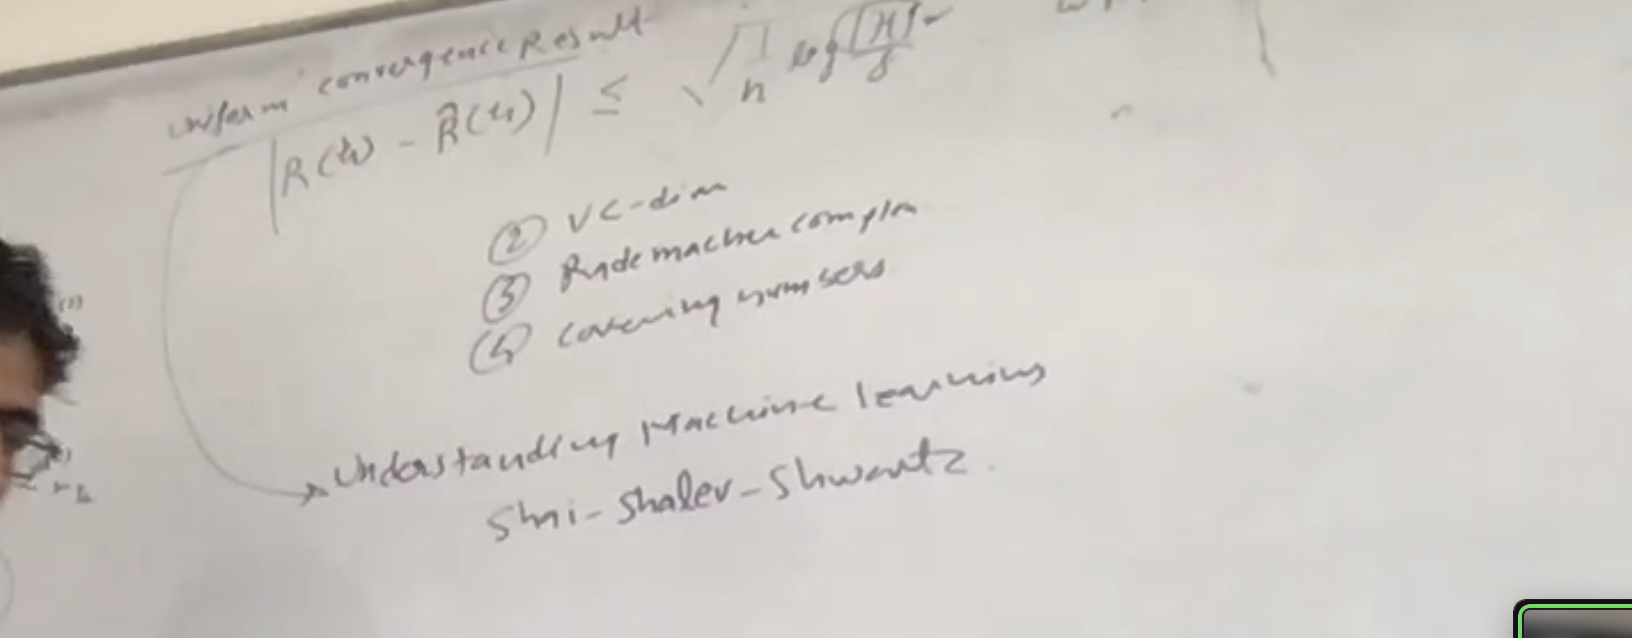 Uniform convergence Result
|R(h) - R̂(h)| ≤ √ 1/n log |H|/δ
② VC-dim
③ Rademacher complex
④ covering numbers
Understanding Machine learning
Shai-Shalev-Shwartz.